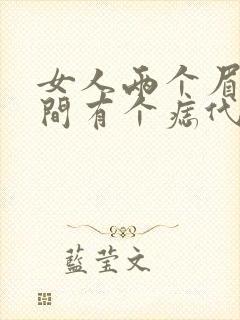 女人两个眉
間有个痣代
藍莹文